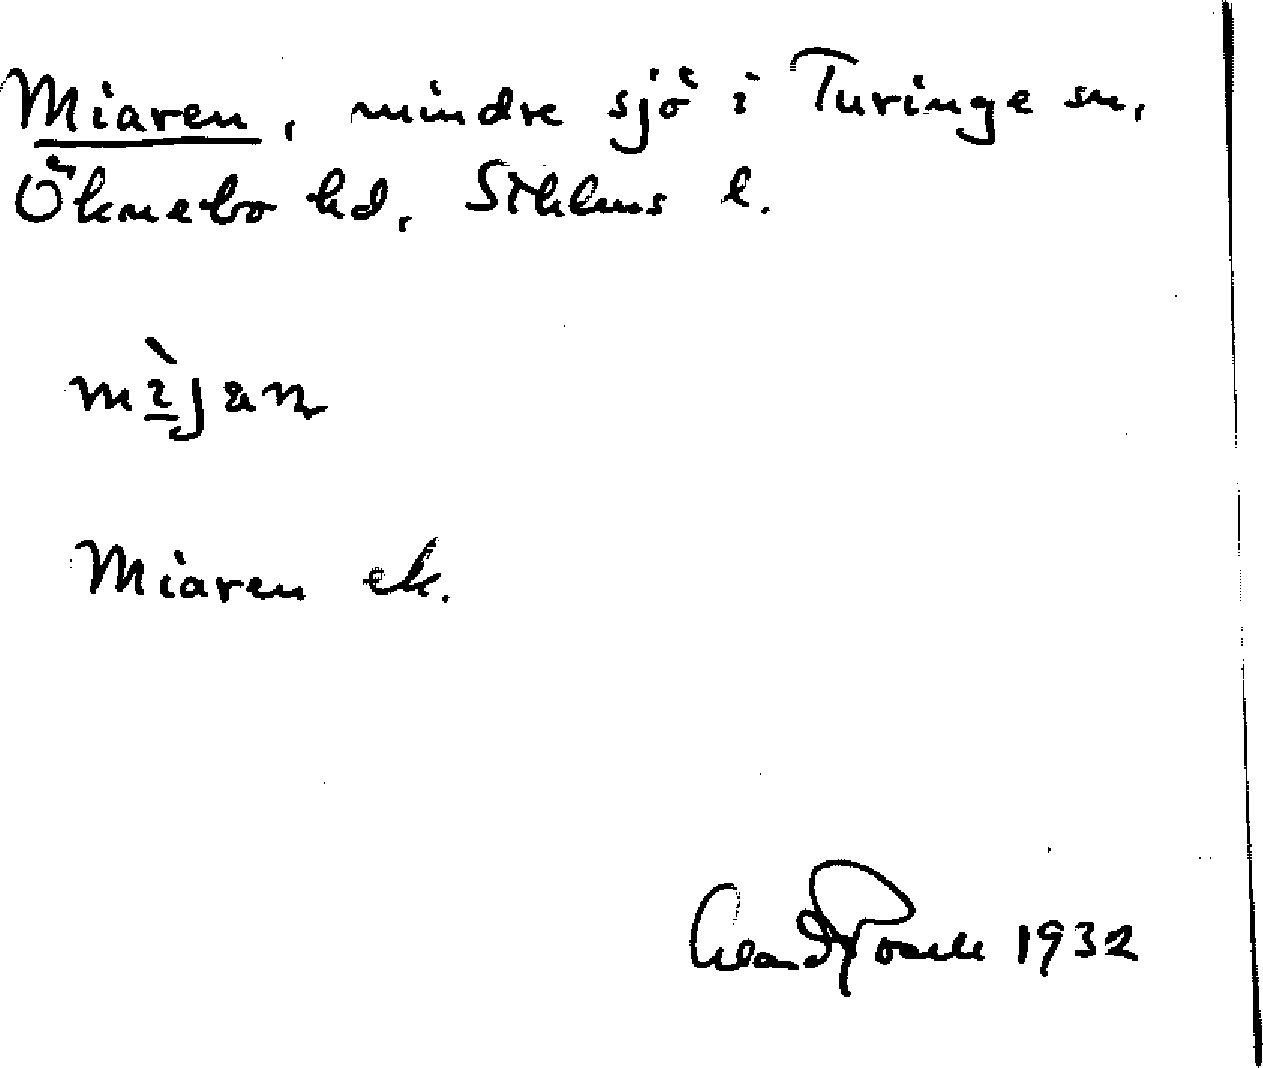 Miaren, mindre sjö i Turinge sn,
Öknebo hd, Sthlms l.
mìjan
Miaren ek.
1932